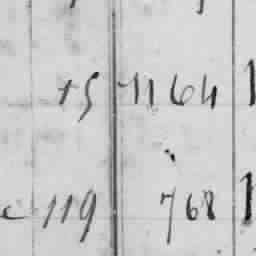 15 1164 1
c 119 768 1